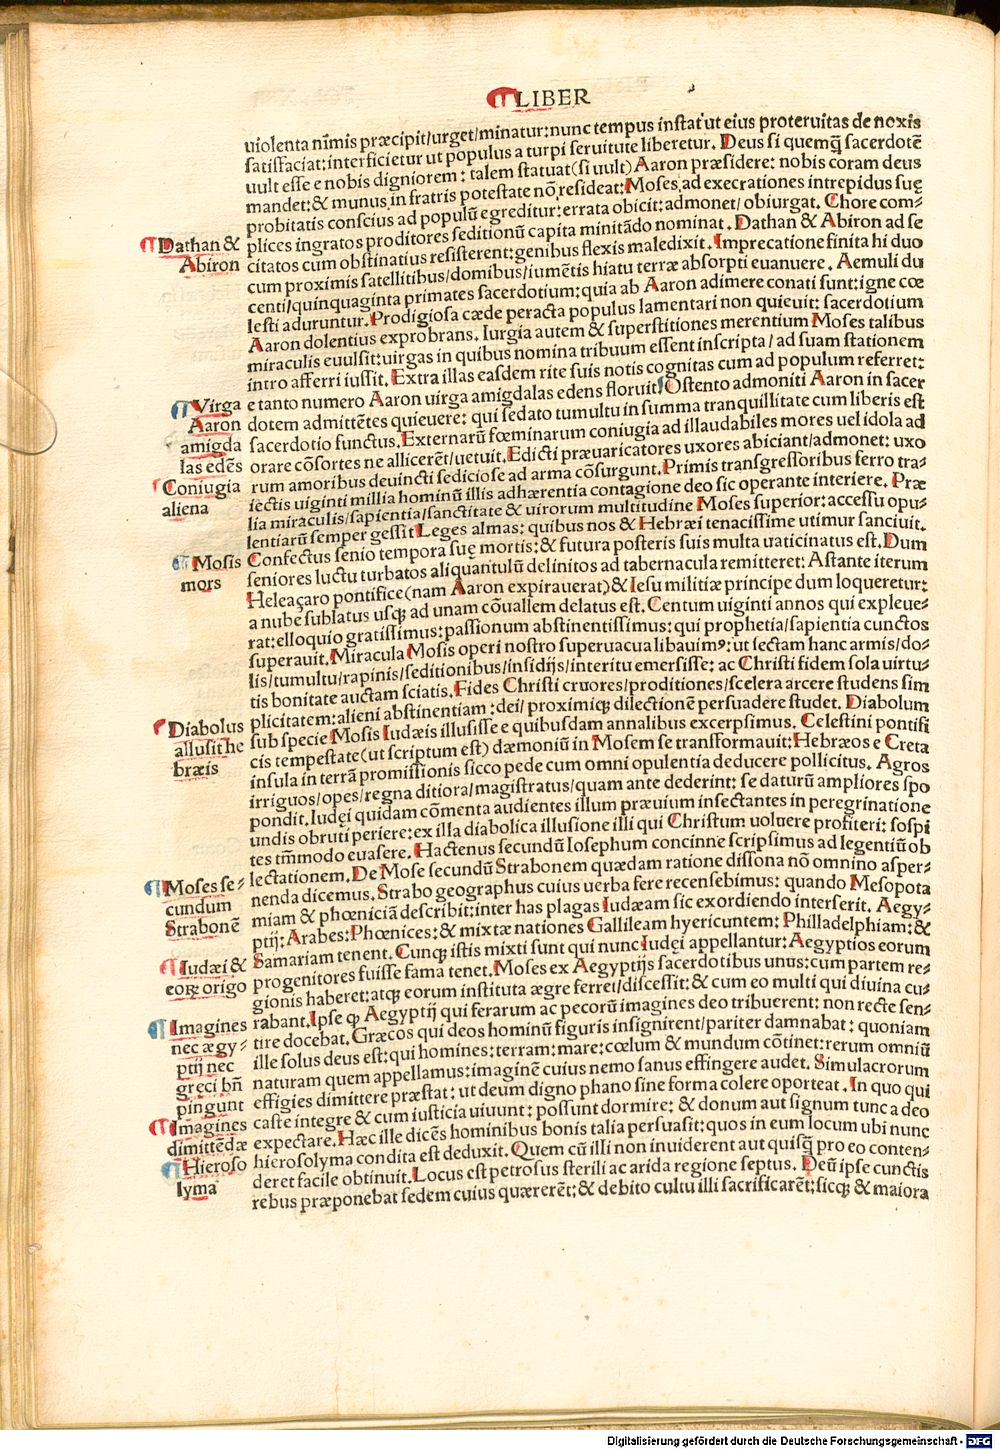 LIBER
uiolenta nimis præcipit/urget/minatur:nunc tempus instat ut eius proteruitas de noxis
satisfaciat:interficietur ut populus a turpi seruitute liberetur. Deus si quemq̃ sacerdotē
uult esse e nobis digniorem: talem statuat(si uult) Aaron præsidere: nobis coram deus
mandet:& munus in fratris potestate nō resideat:Moses ad execrationes intrepidus suę
probitatis conscius ad populū egreditur:errata obicit:admonet/obiurgat. Chore com-
plices ingratos proditores seditionū capita minitādo nominat. Dathan & Abiron ad se
citatos cum obstinatius resisterent:genibus flexis maledixit. Imprecatione finita hi duo
cum proximis satellitibus/domibus/iumētis hiatu terræ absorpti euanuere. Aemuli du
centi/quinquaginta primates sacerdotium:quia ab Aaron adimere conati sunt:igne cœ
lesti aduruntur. Prodigiosa cæde peracta populus lamentari non quieuit: sacerdotium
Aaron dolentius exprobrans. Iurgia autem & superstitiones merentium Moses talibus
miraculis euulsit:uirgas in quibus nomina tribuum essent inscripta/ad suam stationem
intro afferri iussit. Extra illas easdem rite suis notis cognitas cum ad populum referret:
e tanto numero Aaron uirga amigdalas edens floruit. Ostento admoniti Aaron in sacer
dotem admittētes quieuere: qui sedato tumultu in summa tranquillitate cum liberis est
sacerdotio functus. Externarū fœminarum coniugia ad illaudabiles mores uel idola ad
orare cōsortes ne allicerēt/uetuit. Edicti præuaricatores uxores abiciant/admonet: uxo
rum amoribus deuincti sediciose ad arma cōsurgunt. Primis transgressoribus ferro tra-
iectis uiginti millia hominū illis adhærentia contagione deo sic operante interiere. Præ
lia miraculis/sapientia/sanctitate & uirorum multitudine Moses superior: accessu opu-
lentiarū semper gessit Leges almas: quibus nos & Hebræi tenacissime utimur sanciuit.
Confectus senio tempora suę mortis:& futura posteris suis multa uaticinatus est. Dum
seniores luctu turbatos aliquantulū delinitos ad tabernacula remitteret: Astante iterum
Heleaçaro pontifice(nam Aaron expirauerat)& Iesu militiæ principe dum loqueretur:
a nube sublatus usq; ad unam cōuallem delatus est. Centum uiginti annos qui expleue-
rat:elloquio gratissimus:passionum abstinentissimus: qui prophetia/sapientia cunctos
superauit. Miracula Mosis operi nostro superuacua libauimꝰ: ut sectam hanc armis/do-
lis/tumultu/rapinis/seditionibus/insidijs/interitu emersisse: ac Christi fidem sola uirtu-
tis bonitate auctam sciatis. Fides Christi cruores/proditiones/scelera arcere studens sim
plicitatem:alieni abstinentiam:dei/proximiq; dilectionē persuadere studet. Diabolum
sub specie Mosis Iudæis illusisse e quibusdam annalibus excerpsimus. Celestini pontifi
cis tempestate(ut scriptum est) dæmoniū in Mosem se transformauit:Hebræos e Creta
insula in terrā promissionis sicco pede cum omni opulentia deducere pollicitus. Agros
irriguos/opes/regna ditiora/magistratus/quam ante dederint: se daturū ampliores spo
pondit. Iudęi quidam cōmenta audientes illum præuium insectantes in peregrinatione
undis obruti periere:ex illa diabolica illusione illi qui Christum uoluere profiteri: sospi
tes tm̄modo euasere. Hactenus secundū Iosephum concinne scripsimus ad legentiū ob
lectationem. De Mose secundū Strabonem quædam ratione dissona nō omnino asper-
nenda dicemus. Strabo geographus cuius uerba fere recensebimus: quando Mesopota
miam & phœniciā describit:inter has plagas Iudæam sic exordiendo interserit. Aegy-
ptij: Arabes:Phœnices:& mixtæ nationes Gallileam hyericuntem: Philladelphiam:&
Samariam tenent. Cunq; istis mixti sunt qui nunc Iudęi appellantur: Aegyptios eorum
progenitores fuisse fama tenet. Moses ex Aegyptijs sacerdotibus unus:cum partem re-
gionis haberet:atq; eorum instituta ægre ferret/discessit:& cum eo multi qui diuina cu-
rabant. Ipse q; Aegyptij qui ferarum ac pecorū imagines deo tribuerent: non recte sen-
tire docebat. Græcos qui deos hominū figuris insignirent/pariter damnabat: quoniam
ille solus deus est:qui homines:terram:mare:cœlum & mundum cōtinet:rerum omniū
naturam quem appellamus:imaginē cuius nemo sanus effingere audet. Simulacrorum
effigies dimittere præstat: ut deum digno phano sine forma colere oporteat. In quo qui
caste integre & cum iusticia uiuunt: possunt dormire: & donum aut signum tunc a deo
expectare. Hæc ille dicēs hominibus bonis talia persuasit:quos in eum locum ubi nunc
hierosolyma condita est deduxit. Quem cū illi non inuiderent aut quisq̃ pro eo conten-
deret facile obtinuit. Locus est petrosus sterili ac arida regione septus. Deū ipse cunctis
rebus præponebat sedem cuius quærerēt:& debito cultu illi sacrificarēt:sicq; & maiora
Dathan &
Abiron
Virga
Aaron
amigda
las edēs
Coniugia
aliena
Mosis
mors
Diabolus
allusit he
bræis
Moses se-
cundum
Strabonē
Iudæi &
eoꝝ origo
Imagines
nec ægy-
ptij nec
gręci bn̄
pingunt
Imagines
dimittēdæ
Hieroso
lyma
Digitalisierung gefördert durch die Deutsche Forschungsgemeinschaft - DFG